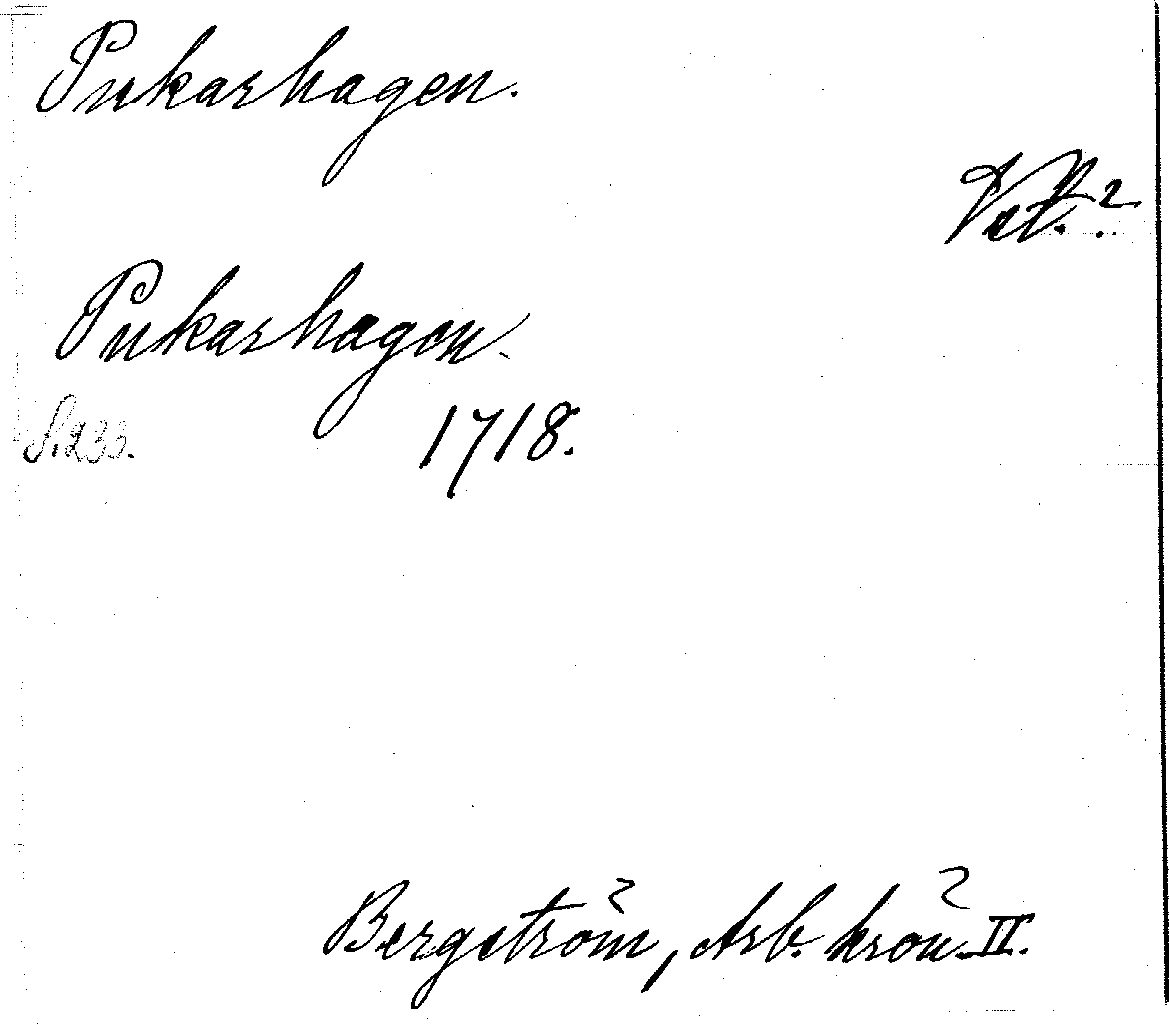 Pukarhagen.
Vst.?
Pukarhagen.
S. 233. 1718.
Bergström, Arb. krön. II.